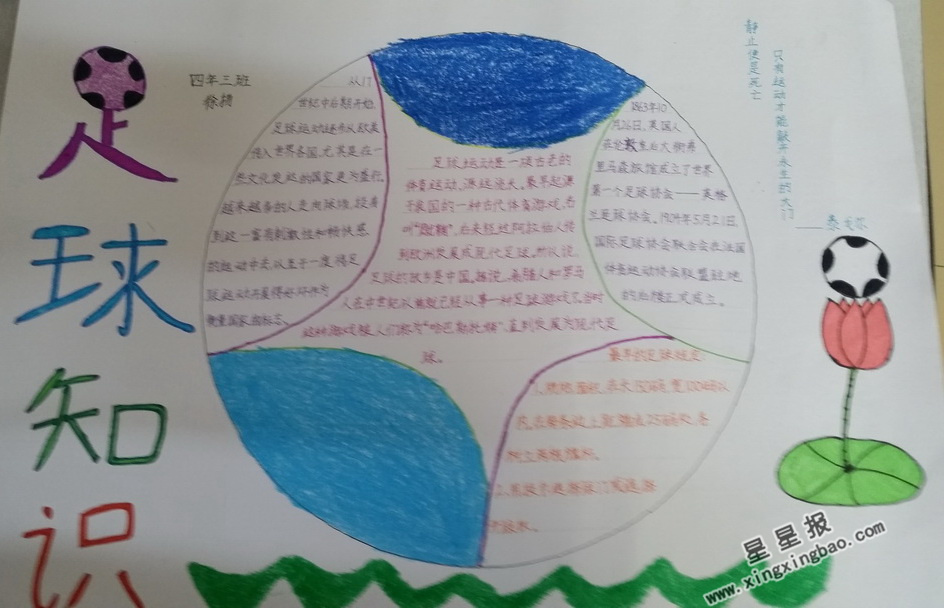 足球知识
四年三班
徐
从17
世纪中后期开始,
足球运动逐步从欧美
传入世界各国,尤其是在一
些文化发达的国家更为盛行。
越来越多的人走向球场,投身
到这一富有刺激性和畅快感
的运动中去,以至于一度将足
球运动开展得好坏作为
衡量国家的标志。
足球运动是一项古老的
体育运动,源远流长。最早起源
于我国的一种古代体育游戏,名
叫“蹴鞠”,后来经过阿拉伯人传
到欧洲发展成现代足球。所以说,
足球的故乡是中国。据说,希腊人和罗马
人在中世纪以前就已经从事一种足球游戏了。当时
这种游戏被人们称为“哈巴斯托姆”,直到发展为现代足
球。
1863年10
月26日,英国人
在伦敦皇后大街弗
里马森旅馆成立了世界
第一个足球协会——英格
兰足球协会。1904年5月21日,
国际足球协会联合会在法国
体育运动协会联盟驻地
的后楼正式成立。
最早的足球规定:
1.球场面积,
静止便是死亡
只有运动才能敲开永生的大门
——泰戈尔
星星报
www.xingxingbao.com